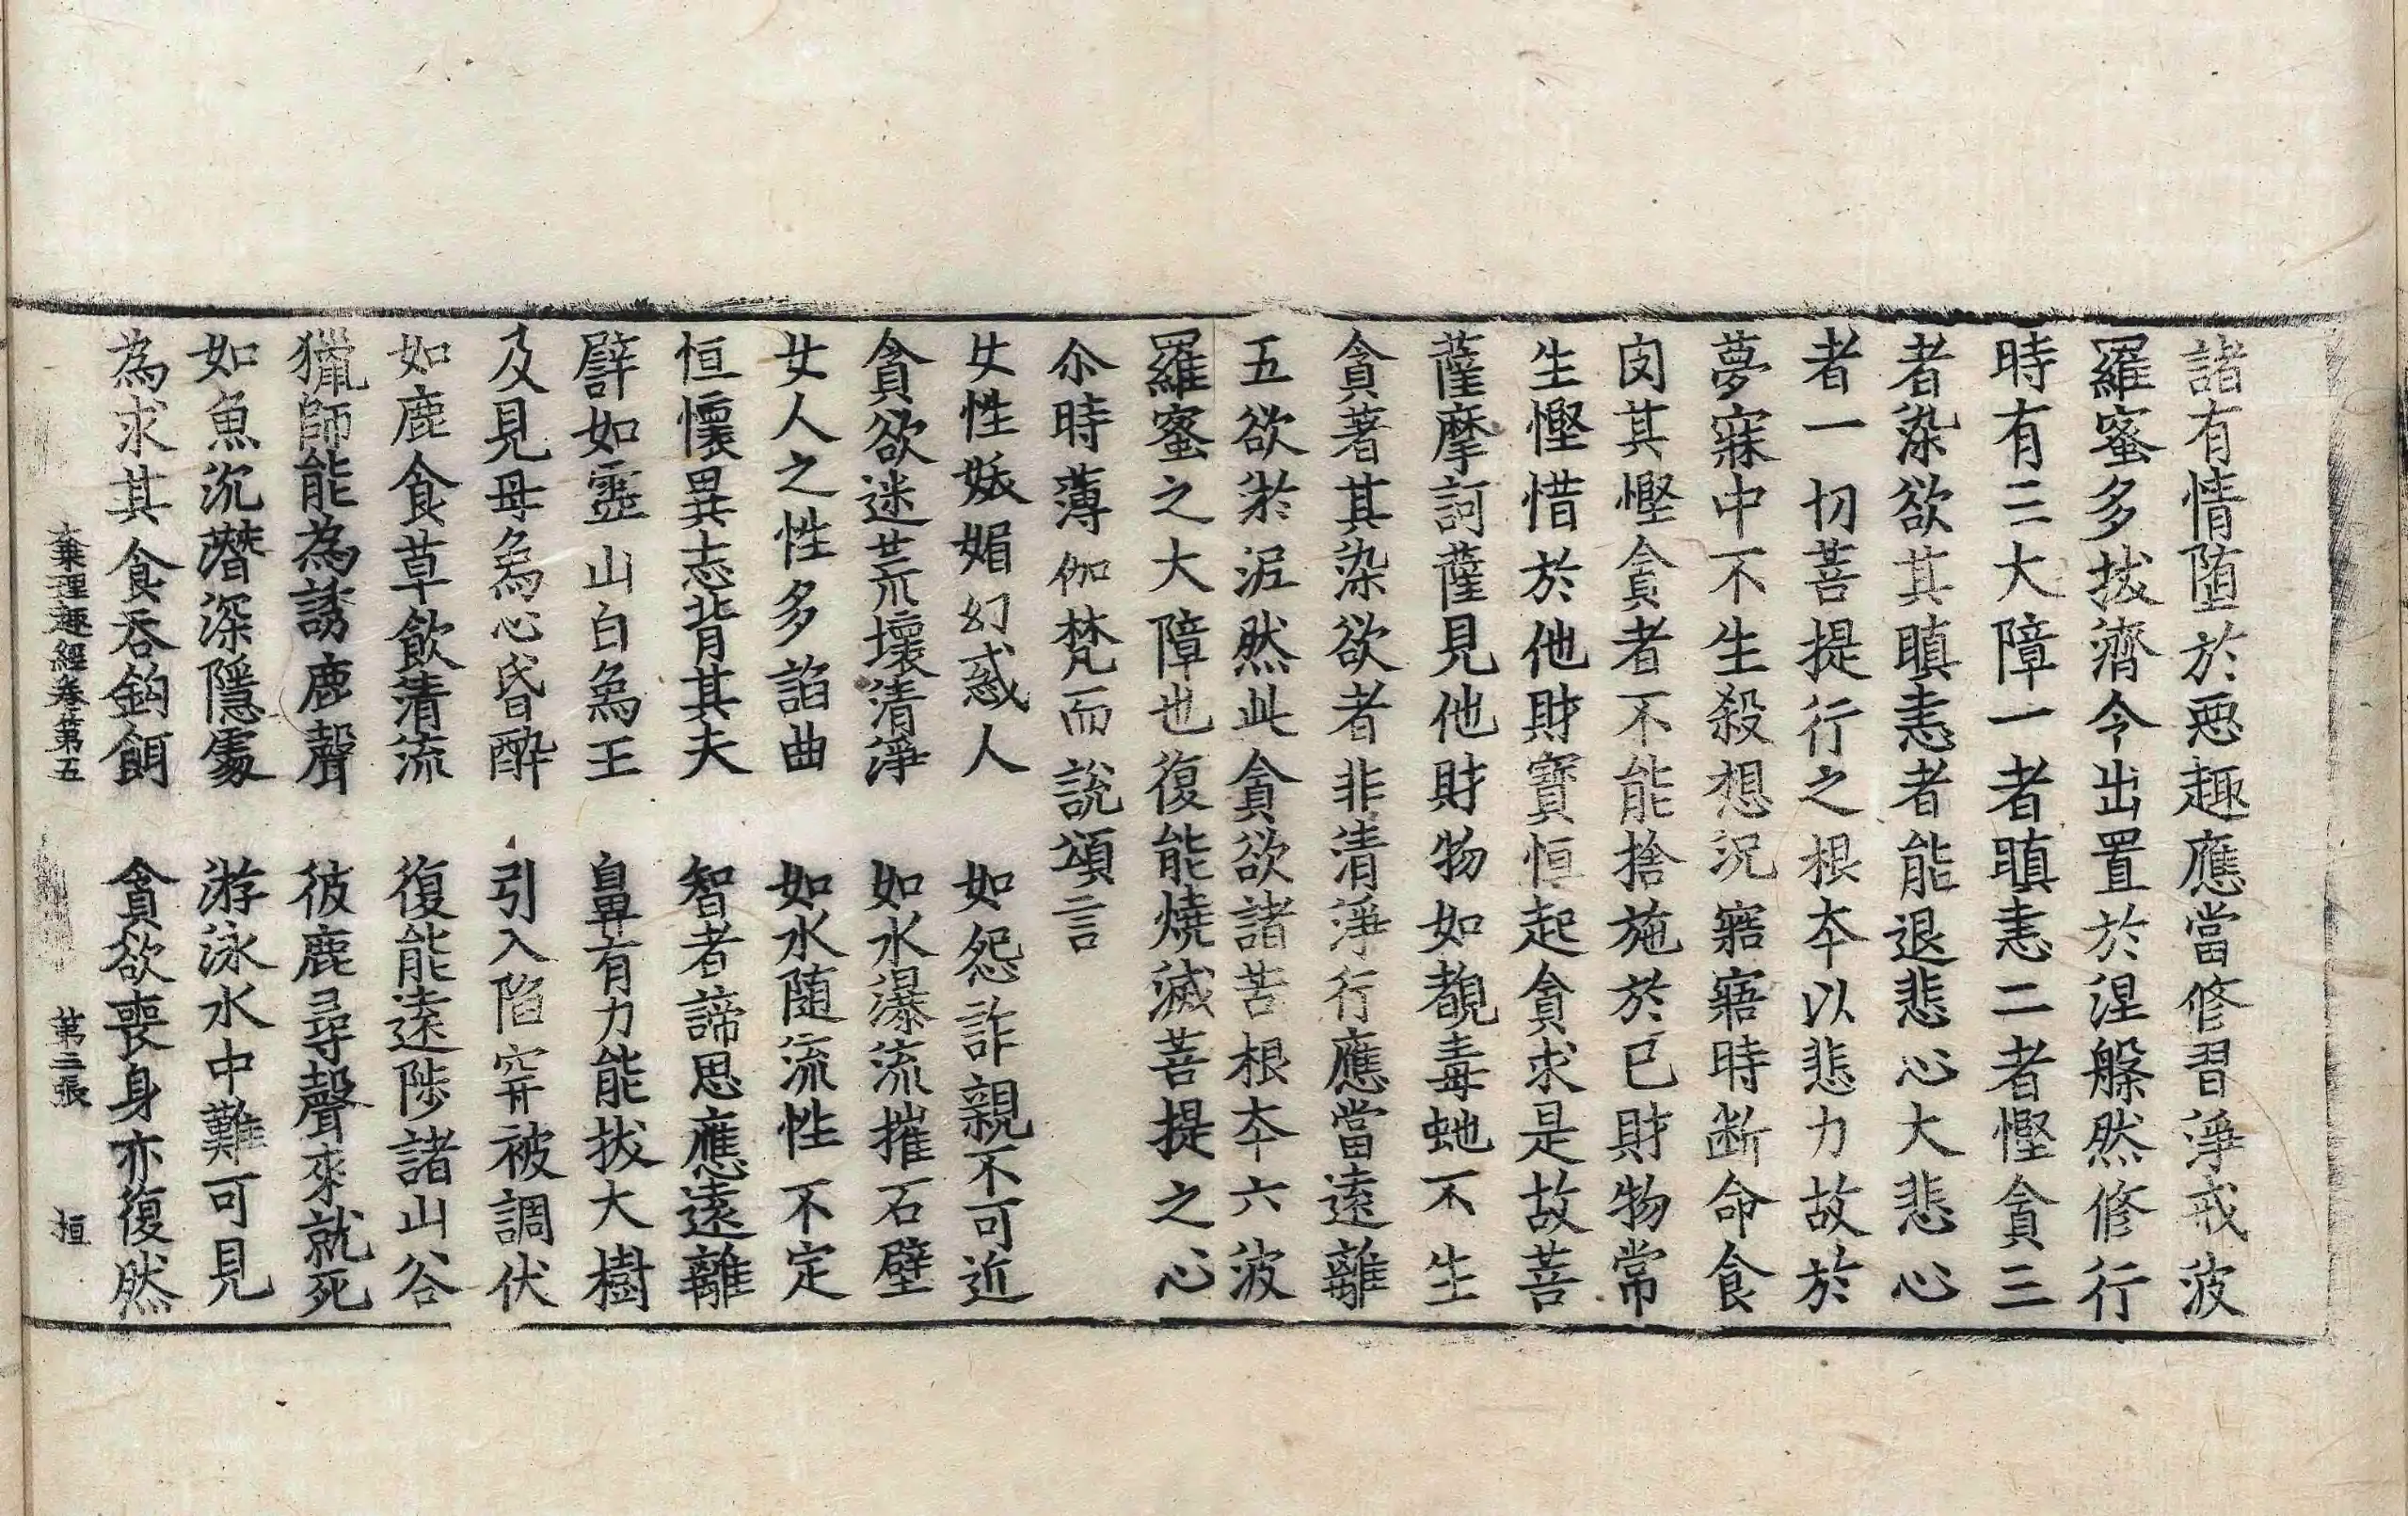 諸有情堕於惡趣應當修習淨戒波
羅蜜多拔濟令出置於涅槃然修行
時有三大障一者瞋恚二者慳貪三
者染欲其瞋恚者能退悲心大悲心
者一切菩提行之根本以悲力故於
夢寐中不生殺想況寤寤時断命食
肉其慳貪者不能捨施於已財物常
生慳惜於他財寶恒起貪求是故菩
薩摩訶薩見他財物如覩毒虵不生
貪著其染欲者非清淨行應當遠離
五欲淤泥然此貪欲諸苦根本六波
羅蜜之大障也復能燒滅菩提之心
尒時薄伽梵而說頌言
女性妖媚幻惑人　如怨詐親不可近
貪欲迷荒壞清淨　如水瀑流摧石壁
女人之性多諂曲　如水随流性不定
恒懷異志背其夫　智者諦思應遠離
譬如靈山白鳥王　鼻有力能拔大樹
及見母鳥心昏醉　引入陷穽被調伏
如鹿食草飲清流　復能遠陟諸山谷
獵師能為誘鹿聲　彼鹿尋聲來就死
如魚沉潛深隱處　游泳水中難可見
為求其食吞鉤餌　貪欲喪身亦復然
大乗理趣經卷第五　第三張　桓